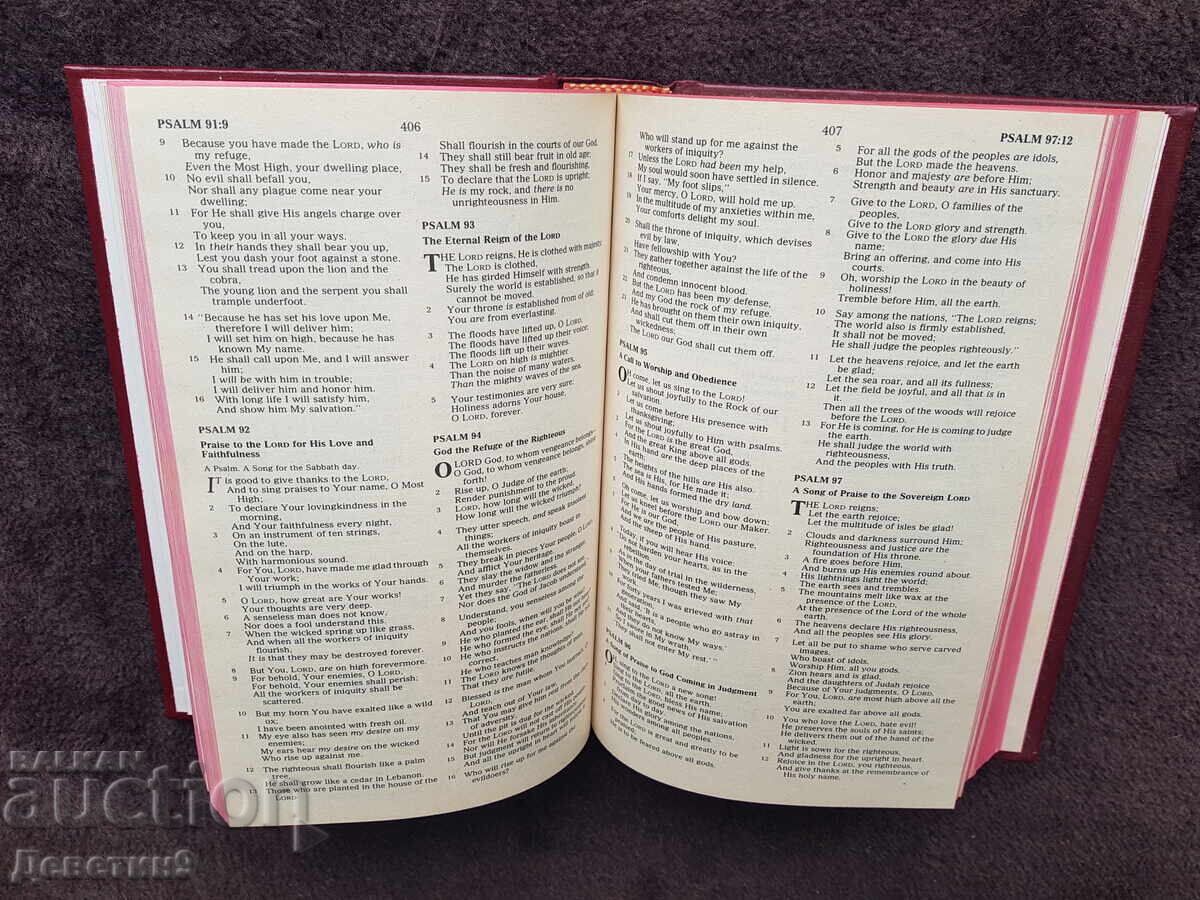 PSALM 91:9
406
9 Because you have made the LORD, who is
my refuge,
Even the Most High, your dwelling place,
10 No evil shall befall you,
Nor shall any plague come near your
dwelling;
11 For He shall give His angels charge over
you,
To keep you in all your ways.
12 In their hands they shall bear you up,
Lest you dash your foot against a stone.
13 You shall tread upon the lion and the
cobra,
The young lion and the serpent you shall
trample underfoot.
14 "Because he has set his love upon Me,
therefore I will deliver him;
I will set him on high, because he has
known My name.
15 He shall call upon Me, and I will answer
him;
I will be with him in trouble;
I will deliver him and honor him.
16 With long life I will satisfy him,
And show him My salvation."
PSALM 92
Praise to the LORD for His Love and
Faithfulness
A Psalm. A Song for the Sabbath day.
IT is good to give thanks to the LORD,
And to sing praises to Your name, O Most
High;
2 To declare Your lovingkindness in the
morning,
And Your faithfulness every night,
3 On an instrument of ten strings,
On the lute,
And on the harp,
With harmonious sound.
4 For You, LORD, have made me glad through
Your work;
I will triumph in the works of Your hands.
5 O LORD, how great are Your works!
Your thoughts are very deep.
6 A senseless man does not know,
Nor does a fool understand this.
7 When the wicked spring up like grass,
And when all the workers of iniquity
flourish,
It is that they may be destroyed forever.
8 But You, LORD, are on high forevermore.
9 For behold, Your enemies, O LORD,
For behold, Your enemies shall perish;
All the workers of iniquity shall be
scattered.
10 But my horn You have exalted like a wild
ox;
I have been anointed with fresh oil.
11 My eye also has seen my desire on my
enemies;
My ears hear my desire on the wicked
Who rise up against me.
12 The righteous shall flourish like a palm
tree,
He shall grow like a cedar in Lebanon.
13 Those who are planted in the house of the
LORD
Shall flourish in the courts of our God.
14 They shall still bear fruit in old age;
They shall be fresh and flourishing,
15 To declare that the LORD is upright;
He is my rock, and there is no
unrighteousness in Him.
PSALM 93
The Eternal Reign of the LORD
THE LORD reigns, He is clothed with majesty;
The LORD is clothed,
He has girded Himself with strength.
Surely the world is established, so that it
cannot be moved.
2 Your throne is established from of old;
You are from everlasting.
3 The floods have lifted up, O LORD,
The floods have lifted up their voice;
The floods lift up their waves.
4 The LORD on high is mightier
Than the noise of many waters,
Than the mighty waves of the sea.
5 Your testimonies are very sure;
Holiness adorns Your house,
O LORD, forever.
PSALM 94
God the Refuge of the Righteous
O LORD God, to whom vengeance belongs—
O God, to whom vengeance belongs, shine
forth!
2 Rise up, O Judge of the earth;
Render punishment to the proud.
3 LORD, how long will the wicked,
How long will the wicked triumph?
4 They utter speech, and speak insolent
things;
All the workers of iniquity boast in
themselves.
5 They break in pieces Your people, O LORD,
And afflict Your heritage.
6 They slay the widow and the stranger,
And murder the fatherless.
7 Yet they say, "The LORD does not see,
Nor does the God of Jacob understand."
8 Understand, you senseless among the
people;
And you fools, when will you be wise?
9 He who planted the ear, shall He not hear?
He who formed the eye, shall He not see?
10 He who instructs the nations, shall He not
correct,
He who teaches man knowledge?
11 The LORD knows the thoughts of man,
That they are futile.
12 Blessed is the man whom You instruct, O
LORD,
And teach out of Your law,
13 That You may give him rest from the days
of adversity,
Until the pit is dug for the wicked.
14 For the LORD will not cast off His people,
Nor will He forsake His inheritance.
15 But judgment will return to righteousness,
And all the upright in heart will follow it.
16 Who will rise up for me against the
evildoers?
407
PSALM 97:12
Who will stand up for me against the
workers of iniquity?
17 Unless the LORD had been my help,
My soul would soon have settled in silence.
18 If I say, "My foot slips,"
Your mercy, O LORD, will hold me up.
19 In the multitude of my anxieties within me,
Your comforts delight my soul.
20 Shall the throne of iniquity, which devises
evil by law,
Have fellowship with You?
21 They gather together against the life of the
righteous,
And condemn innocent blood.
22 But the LORD has been my defense,
And my God the rock of my refuge.
23 He has brought on them their own iniquity,
And shall cut them off in their own
wickedness;
The LORD our God shall cut them off.
PSALM 95
A Call to Worship and Obedience
OH come, let us sing to the LORD!
Let us shout joyfully to the Rock of our
salvation.
2 Let us come before His presence with
thanksgiving;
Let us shout joyfully to Him with psalms.
3 For the LORD is the great God,
And the great King above all gods.
4 In His hand are the deep places of the
earth;
The heights of the hills are His also.
5 The sea is His, for He made it;
And His hands formed the dry land.
6 Oh come, let us worship and bow down;
Let us kneel before the LORD our Maker.
7 For He is our God,
And we are the people of His pasture,
And the sheep of His hand.
Today, if you will hear His voice:
8 "Do not harden your hearts, as in the
rebellion,
As in the day of trial in the wilderness,
9 When your fathers tested Me;
They tried Me, though they saw My
work.
10 For forty years I was grieved with that
generation,
And said, 'It is a people who go astray in
their hearts,
And they do not know My ways.'
11 So I swore in My wrath,
'They shall not enter My rest.'"
PSALM 96
A Song of Praise to God Coming in Judgment
OH, sing to the LORD a new song!
Sing to the LORD, all the earth.
2 Sing to the LORD, bless His name;
Proclaim the good news of His salvation
from day to day.
3 Declare His glory among the nations,
His wonders among all peoples.
4 For the LORD is great and greatly to be
praised;
He is to be feared above all gods.
5 For all the gods of the peoples are idols,
But the LORD made the heavens.
6 Honor and majesty are before Him;
Strength and beauty are in His sanctuary.
7 Give to the LORD, O families of the
peoples,
Give to the LORD glory and strength.
8 Give to the LORD the glory due His
name;
Bring an offering, and come into His
courts.
9 Oh, worship the LORD in the beauty of
holiness!
Tremble before Him, all the earth.
10 Say among the nations, "The LORD reigns;
The world also is firmly established,
It shall not be moved;
He shall judge the peoples righteously."
11 Let the heavens rejoice, and let the earth
be glad;
Let the sea roar, and all its fullness;
12 Let the field be joyful, and all that is in
it.
Then all the trees of the woods will rejoice
before the LORD.
13 For He is coming, for He is coming to judge
the earth.
He shall judge the world with
righteousness,
And the peoples with His truth.
PSALM 97
A Song of Praise to the Sovereign LORD
THE LORD reigns;
Let the earth rejoice;
Let the multitude of isles be glad!
2 Clouds and darkness surround Him;
Righteousness and justice are the
foundation of His throne.
3 A fire goes before Him,
And burns up His enemies round about.
4 His lightnings light the world;
The earth sees and trembles.
5 The mountains melt like wax at the
presence of the LORD,
At the presence of the Lord of the whole
earth.
6 The heavens declare His righteousness,
And all the peoples see His glory.
7 Let all be put to shame who serve carved
images,
Who boast of idols.
Worship Him, all you gods.
8 Zion hears and is glad,
And the daughters of Judah rejoice
Because of Your judgments, O LORD.
9 For You, LORD, are most high above all the
earth;
You are exalted far above all gods.
10 You who love the LORD, hate evil!
He preserves the souls of His saints;
He delivers them out of the hand of the
wicked.
11 Light is sown for the righteous,
And gladness for the upright in heart.
12 Rejoice in the LORD, you righteous,
And give thanks at the remembrance of
His holy name.
BALKAN
auction
Деветин9